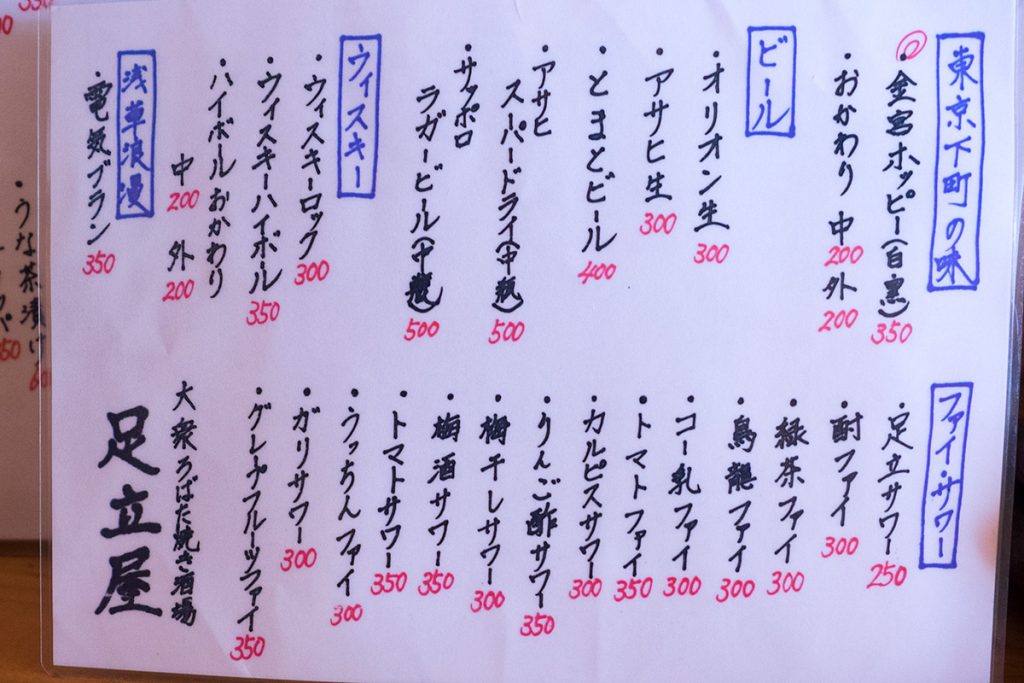 東京下町の味
・金宮ホッピー(白黒)350
・おかわり 中200 外200
ビール
・オリオン生 300
・アサヒ生 300
・とまとビール 400
・アサヒ
スーパードライ(中瓶)500
・サッポロ
ラガービール(中瓶)500
ウィスキー
・ウィスキーロック 300
・ウィスキーハイボール 350
・ハイボールおかわり
中200 外200
浅草浪漫
・電気ブラン 350
ファイ・サワー
・足立サワー 250
・酎ファイ 300
・緑茶ファイ 300
・烏龍ファイ 300
・コー乳ファイ 300
・トマトファイ 350
・カルピスサワー 300
・りんご酢サワー 350
・梅干しサワー 300
・梅酒サワー 350
・トマトサワー 350
・うっちんファイ 300
・ガリサワー 300
・グレープフルーツファイ 350
大衆ろばた焼き酒場
足立屋
・うな茶漬け